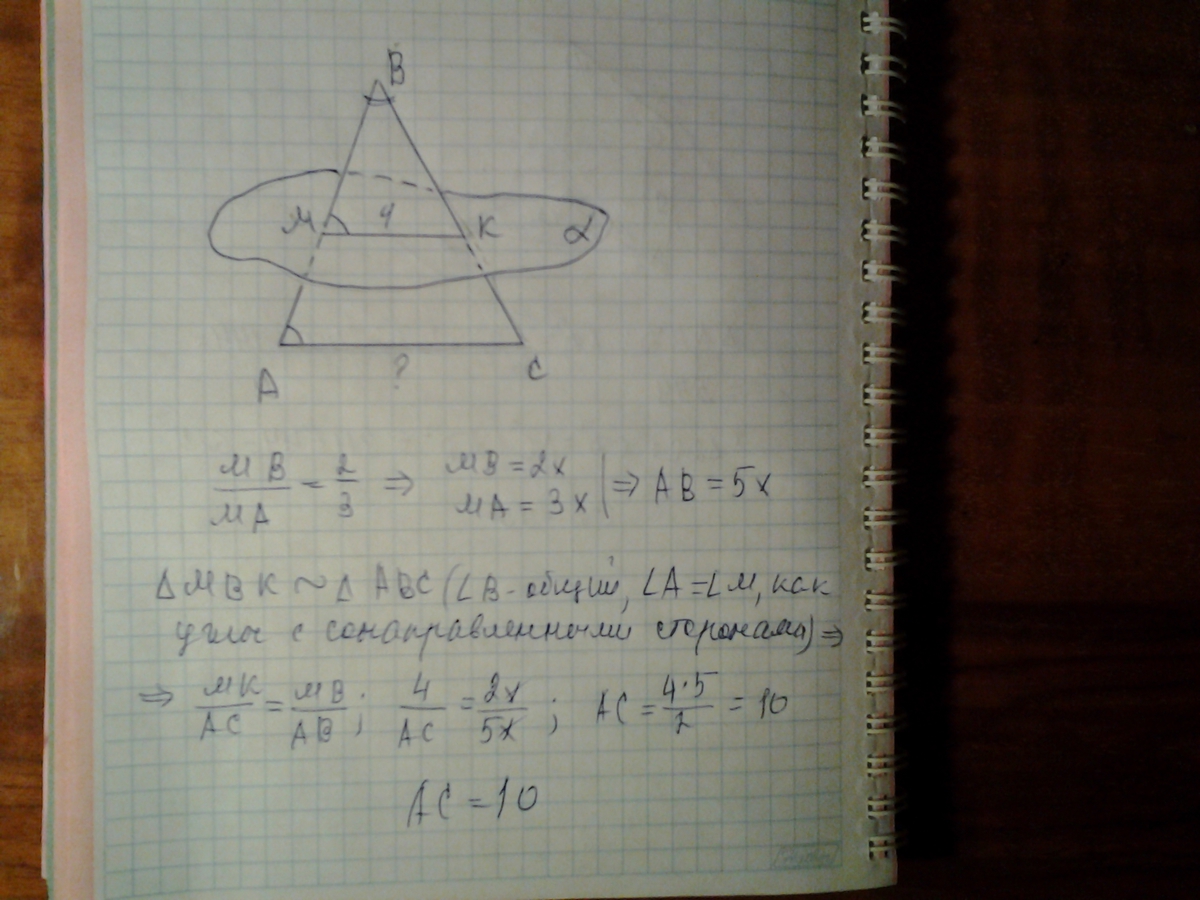 B
M 4 K α
A ? C
MB/MA = 2/3 ⇒ MB = 2x MA = 3x | ⇒ AB = 5x
Δ MBK ~ Δ ABC (∠B - общий, ∠A = ∠M, как
углы с сонаправленными сторонами) ⇒
⇒ MK/AC = MB/AB; 4/AC = 2x/5x; AC = 4·5/2 = 10
AC = 10